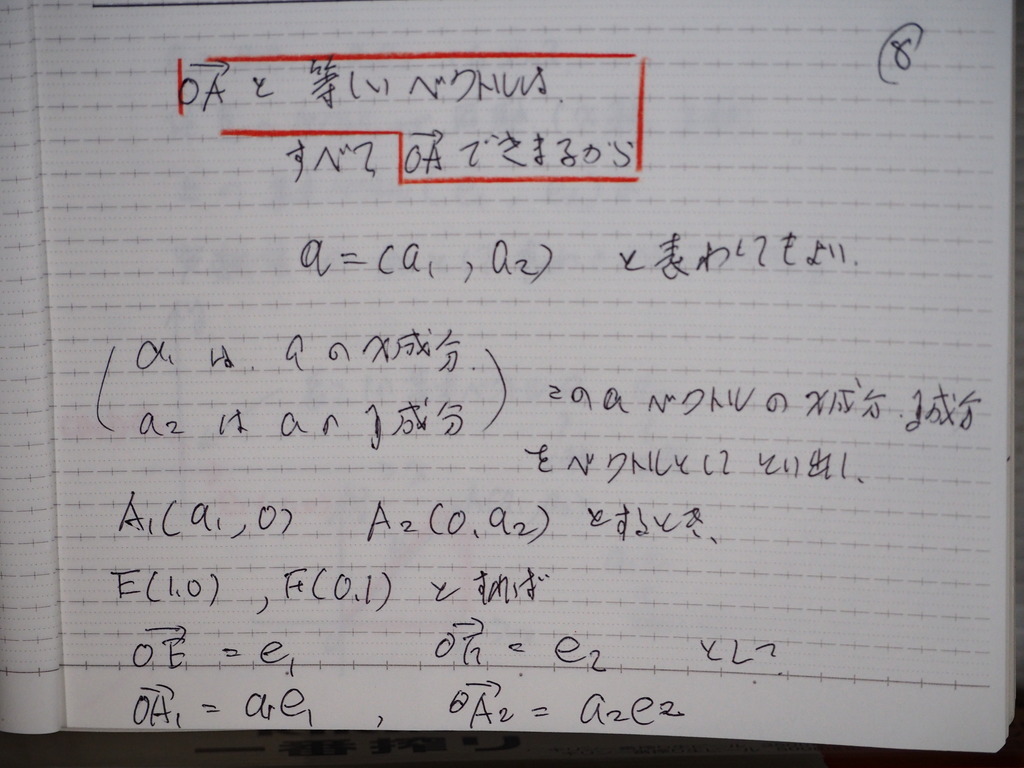 ⑧
OA→ と 等しいベクトルは.
すべて OA→ できまるから
a = (a₁, a₂) と表わしてもよい.
a₁ は. aのx成分.
a₂ は aの y成分
このaベクトルのx成分. y成分
をベクトルとして とり出し.
A₁(a₁, 0) A₂(0, a₂) とするとき、
E(1.0) , F(0.1) と すれば
OE→ = e₁ OF→ = e₂ として
OA₁→ = a₁e₁ , OA₂→ = a₂e₂
一番搾り